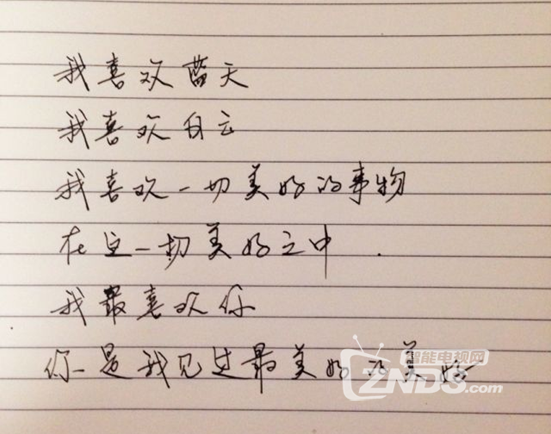 我喜欢蓝天
我喜欢白云
我喜欢一切美好的事物
在这一切美好之中.
我最喜欢你
你是我见过最美好的美好
智能电视网
ZNDS.com